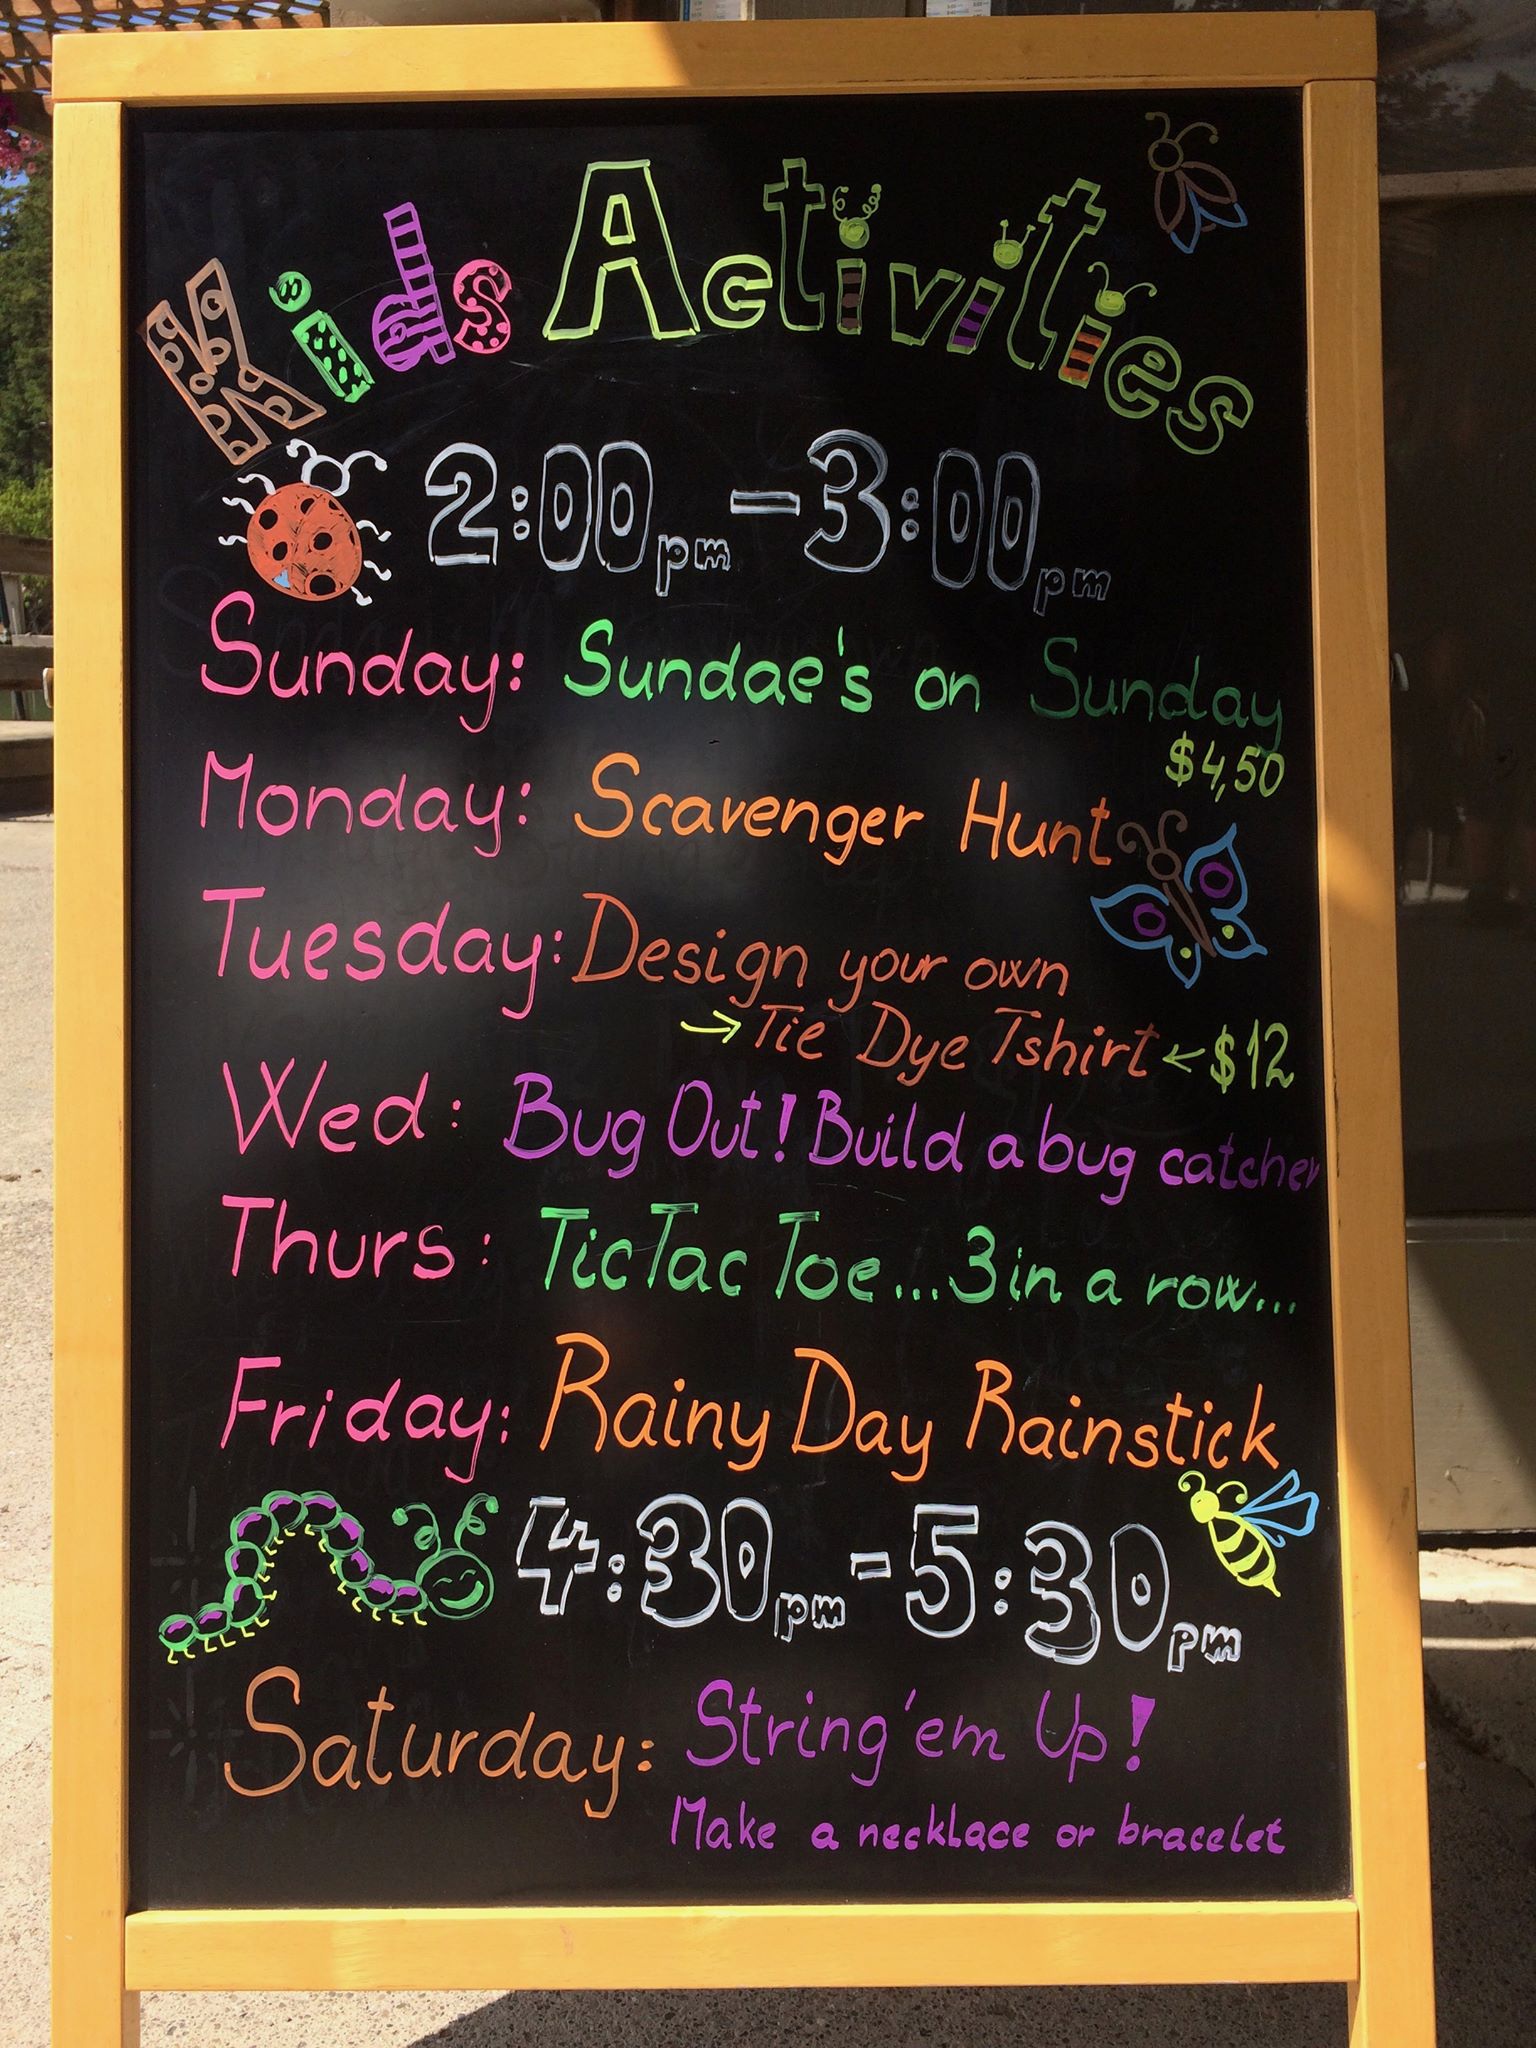 Kids Activities
2:00pm - 3:00pm
Sunday: Sundae's on Sunday
$4,50
Monday: Scavenger Hunt
Tuesday: Design your own
→ Tie Dye Tshirt ← $12
Wed: Bug Out! Build a bug catcher
Thurs: Tic Tac Toe... 3 in a row...
Friday: Rainy Day Rainstick
4:30pm - 5:30pm
Saturday: String 'em Up!
Make a necklace or bracelet